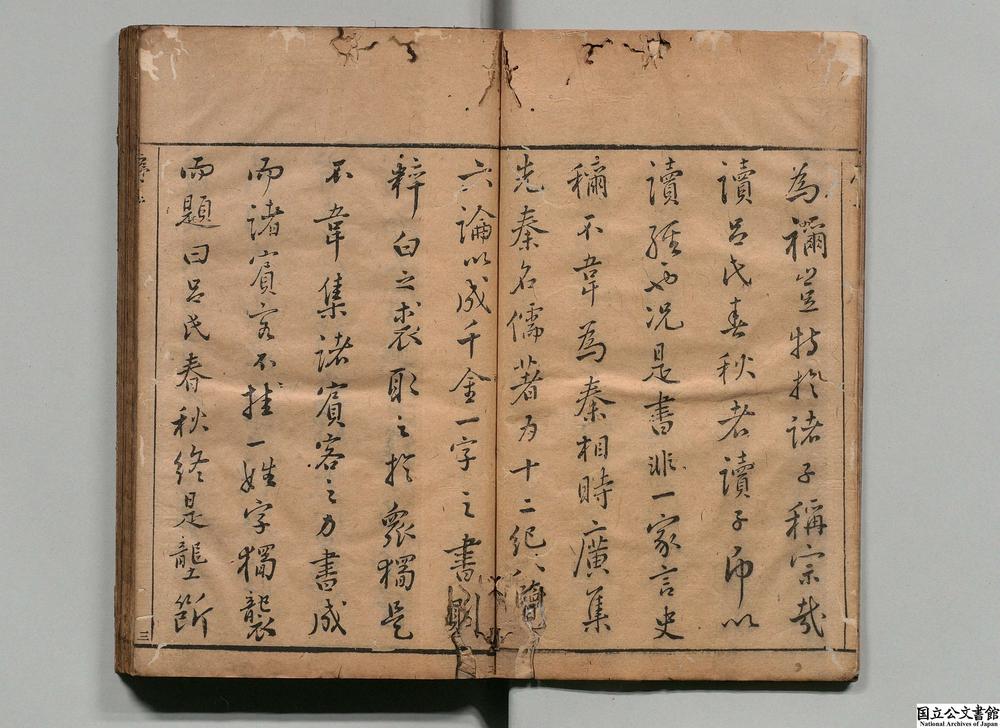 為禰豈特於諸子稱宗哉
讀呂氏春秋者讀子卽以
讀經也況是書非一家言史
稱不韋為秦相時廣集
先秦名儒著為十二紀八覽
六論以成千金一字之書則
粹白之裘取之於衆獨是
不韋集諸賓客之力書成
而諸賓客不挂一姓字獨襲
而題曰呂氏春秋終是壟斷
序
三
国立公文書館
National Archives of Japan